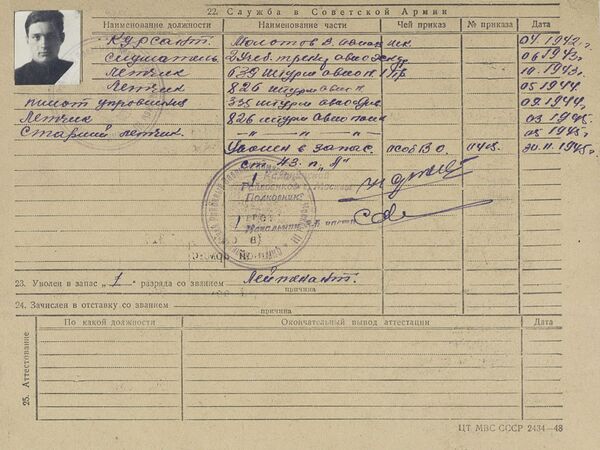 22. Служба в Советской Армии
Наименование должности Наименование части Чей приказ № приказа Дата
Курсант. Молотов В. авиа 04.1942г.
Слушатель 06.1943г
Летчик 639 штурм авиап 10.1943г.
Летчик 826 штурм авиап 05.1944
пилот управления 335 штурм авиа 09.1944.
Летчик 826 штурм авиа полк 03.1945
Старший летчик. —"— —"— —"— 05.1945г
Уволен в запас. 30.11.1945г.
ст. 43. п. „А"
Райвоенком г. Москвы
Полковник
Начальник 2-й части
23. Уволен в запас „1" разряда со званием Лейтенант.
причина
24. Зачислен в отставку со званием
причина
25. Аттестование
По какой должности Окончательный вывод аттестации Дата
ЦТ МВС СССР 2434—48